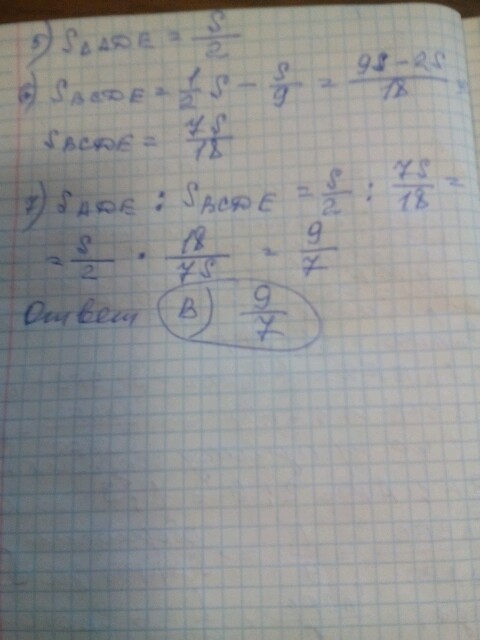 5) S_ΔADE = S/2
6) S_BCDE = 1/2 S - S/9 = 9S-2S/18 =
S_BCDE = 7S/18
7) S_ADE : S_BCDE = S/2 : 7S/18 =
= S/2 · 18/7S = 9/7
Ответ В) 9/7